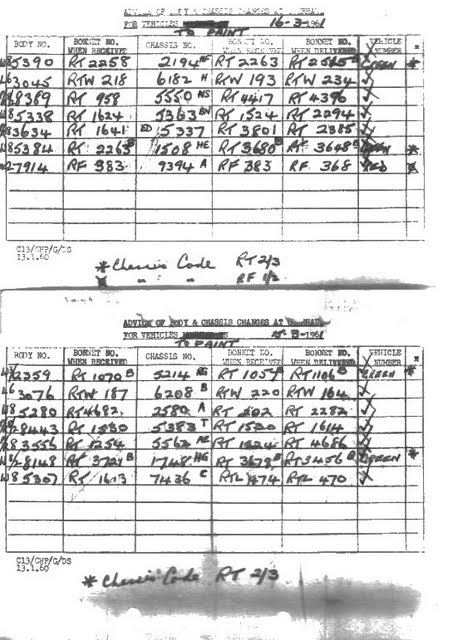 ADVICE OF BODY & CHASSIS CHANGES AT
FOR VEHICLES 16-3-1961
TO PAINT
BODY NO. BONNET NO. WHEN RECEIVED CHASSIS NO. BONNET NO. WHEN DELIVERED VEHICLE NUMBER *
5390 RT 2258 2194 RT 2263 GREEN *
3045 RTW 218 6182 H RTW 193 RTW 234 ✓
8389 RT 958 5550 RT 4417 RT 4396 ✓
85338 RT 1624 5363 RT 1524 RT 2294 ✓
83634 RT 1641 5337 RT 3801 RT 2385 ✓
85384 RT 2263 B 1508 HE RT 3680 B RT 3648 *
27914 RF 383 9394 A RF 383 RF 368 RED
C13/CHP/G/DS
13.1.60
* Chassis Code RT 2/3
" " " RF 1/2
ADVICE OF BODY & CHASSIS CHANGES AT
FOR VEHICLES -3-1961
TO PAINT
BODY NO. BONNET NO. WHEN RECEIVED CHASSIS NO. BONNET NO. BONNET NO. WHEN DELIVERED VEHICLE NUMBER *
2259 RT 1070 B 5214 RT 1106 B GREEN *
3076 RTW 187 6208 B RTW 220 RTW 164 ✓
85280 RT 4682 2580 A RT 2282 ✓
28443 RT 1530 5383 T RT 1530 RT 1614 ✓
83556 RT 1254 5562 RT 1224 RT 4686 ✓
28148 RT 3721 B 1748 HG RT 3678 B RT 3456 B GREEN *
85307 RT 1613 7436 C RTL 474 RTL 470 ✓
C13/CHP/G/DS
13.1.60
* Chassis Code RT 2/3